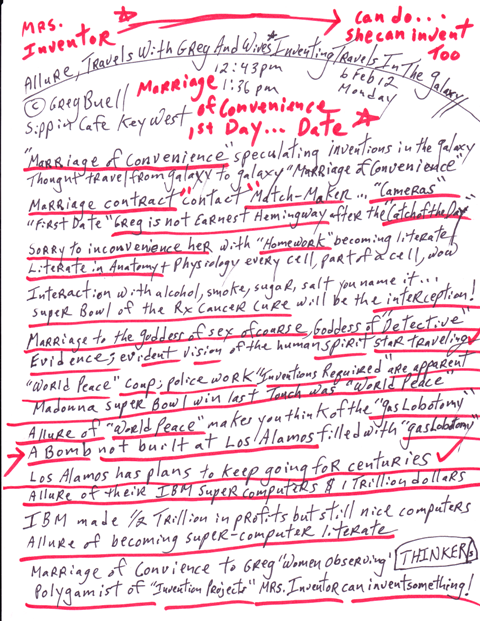 MRS. Inventor
can do... she can invent Too
Allure, Travels With Greg And Wives* Inventing Travels In The galaxy
12:43pm
6 Feb 12
Monday
© Greg Buell
Marriage 1:36 pm
of Convenience
Sippin Cafe Key West
1st Day... Date
"Marriage of Convenience" speculating inventions in the galaxy
Thought travel from galaxy to galaxy "Marriage of Convenience"
Marriage contract "contact" Match-Maker... "Cameras"
"First Date" Greg is not Earnest Hemingway after the "Catch of the Day"
Sorry to inconvenience her with "Homework" becoming literate
Literate in Anatomy + Physiology every cell, part of a cell, wow
Interaction with alcohol, smoke, sugar, salt you name it...
Super Bowl of the Rx Cancer Cure will be the interception!
Marriage to the goddess of sex of coarse, Goddess of "Detective"
Evidence, evident vision of the human spirit star traveling
"World Peace" coup; police work "Inventions Required" are apparent
Madonna Super Bowl win last Touch was "World Peace"
Allure of "World Peace" makes you think of the "gas Lobotomy"
A Bomb not built at Los Alamos filled with "gas Lobotomy"
Los Alamos has plans to keep going for centuries
Allure of their IBM Super computers $ 1 Trillion dollars
IBM made 1/2 Trillion in profits but still nice computers
Allure of becoming super-computer literate
Marriage of Convience to Greg "Women Observing" THINKERs
Polygamist of "Invention Projects" MRS. Inventor can invent something!